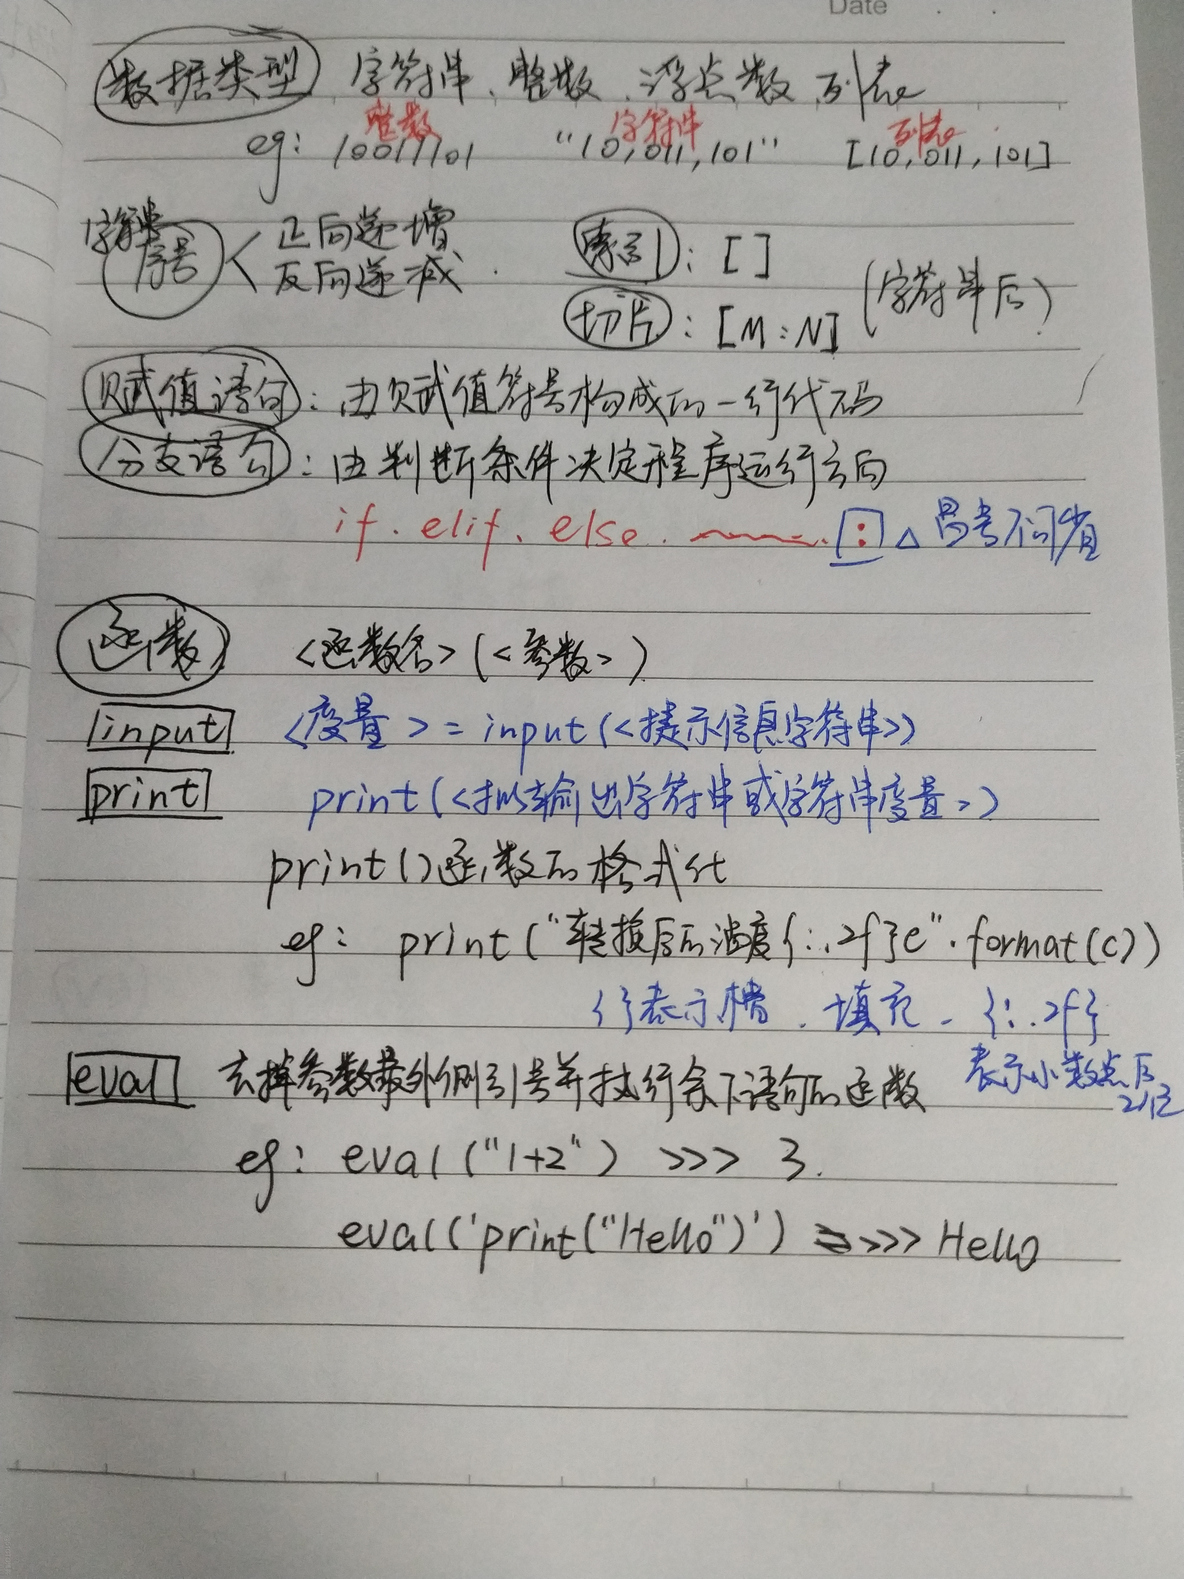 Date
数据类型 字符串、整数、浮点数、列表
整数 字符串 列表
eg: 10011101 "10,011,101" [10,011,101]
字符串
序号 < 正向递增
反向递减.
索引: []
切片: [M:N] (字符串后)
赋值语句: 由赋值符号构成的一行代码
分支语句: 由判断条件决定程序运行方向
if、elif、else. : △ 冒号不可省
函数 <函数名>(<参数>)
input <变量> = input(<提示信息字符串>)
print print(<拟输出字符串或字符串变量>)
print()函数的格式化
eg: print("转换后的温度{:.2f}C".format(C))
{}表示槽、填充、{:.2f}
表示小数点后
2位
eval 去掉参数最外侧引号并执行余下语句的函数
eg: eval("1+2") >>> 3.
eval('print("Hello")') >>>> Hello